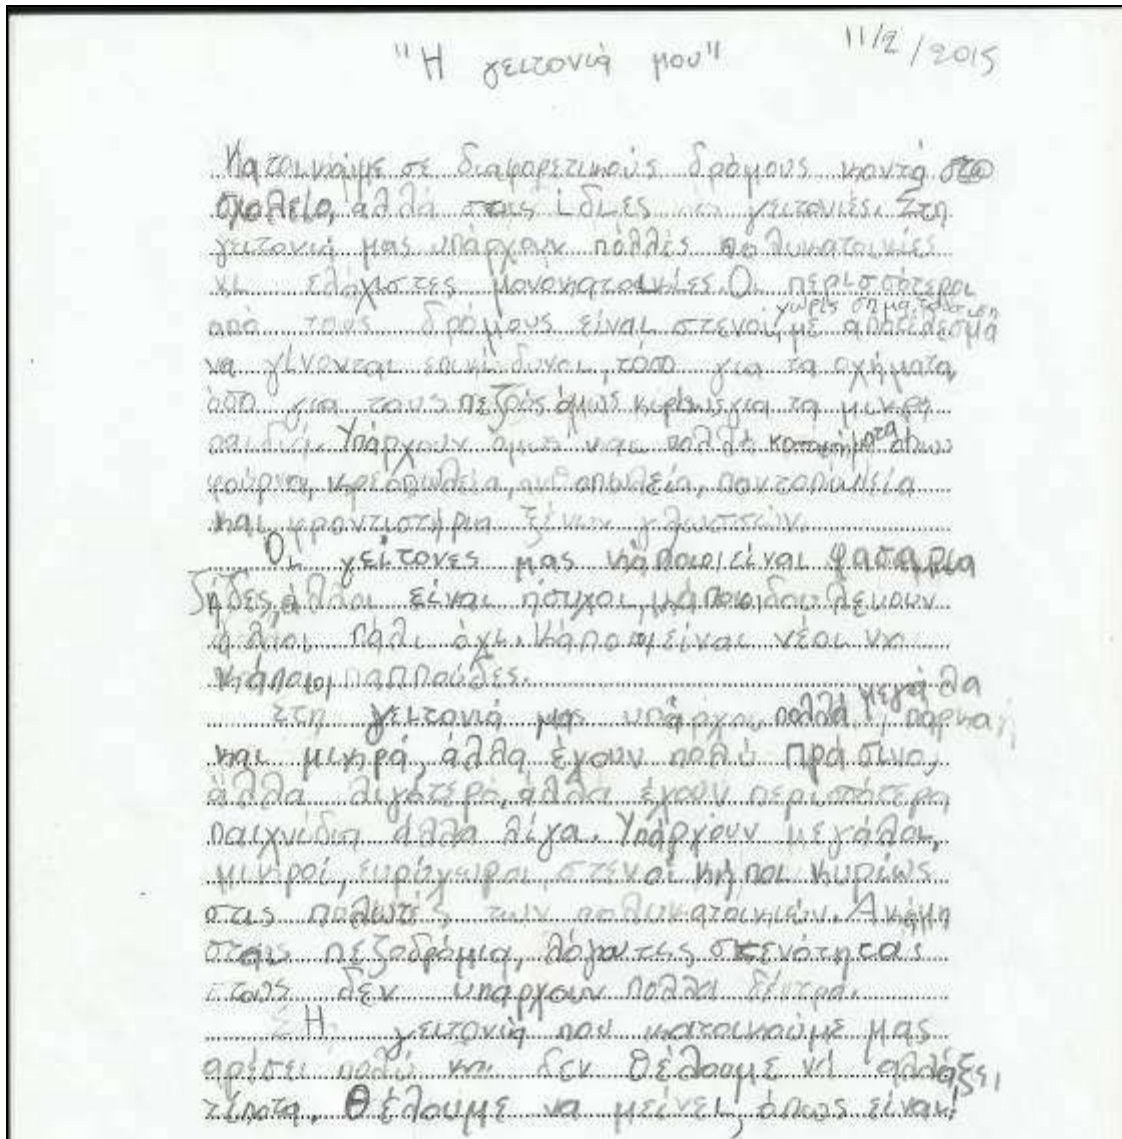 "Η γειτονιά μου" 11/2/2015
Κατοικούμε σε διαφορετικούς δρόμους κοντά στο
σχολείο, αλλά στις ίδιες γειτονιές. Στη
γειτονιά μας υπάρχουν πολλές πολυκατοικίες
κι ελάχιστες μονοκατοικίες. Οι περισσότεροι
από τους δρόμους είναι στενοί, χωρίς σηματοδότηση με αποτέλεσμα
να γίνονται επικίνδυνοι, τόσο για τα οχήματα,
όσο για τους πεζούς όμως κυρίως για τα μικρά
παιδιά. Υπάρχουν όμως και πολλά καταστήματα όπως
φούρνοι, κρεοπωλεία, ανθοπωλεία, παντοπωλεία
και φροντιστήρια ξένων γλωσσών.
Οι γείτονες μας κάποιοι είναι φασαρια
ζήδες, άλλοι είναι ήσυχοι, κάποιοι δουλεύουν
άλλοι πάλι όχι. Κάποιοι είναι νέοι κι
κάποιοι παππούδες.
Στη γειτονιά μας υπάρχουν πολλά μεγάλα πάρκα ή
και μικρά, άλλα έχουν πολύ πράσινο,
άλλα λιγότερο, άλλα έχουν περισσότερα
παιχνίδια άλλα λίγα. Υπάρχουν μεγάλοι,
μικροί, ευρύχωροι, στενοί κήποι κυρίως
στις πυλωτές των πολυκατοικιών. Ακόμη
στα πεζοδρόμια, λόγω της στενότητας
τους δεν υπάρχουν πολλά δέντρα.
Η γειτονιά που κατοικούμε μας
αρέσει πολύ και δεν θέλουμε να αλλάξει
τίποτα. Θέλουμε να μείνει όπως είναι!